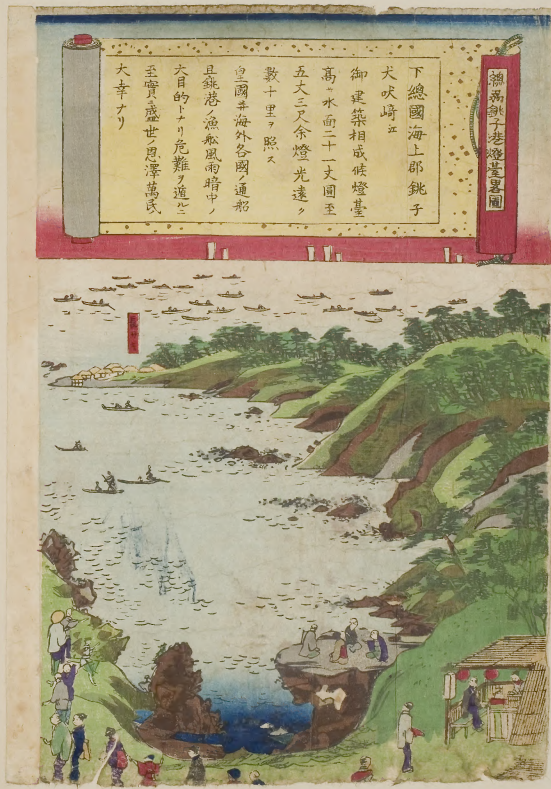 總州銚子港燈臺畧圖
下總國海上郡銚子
犬吠﨑江
御建築相成候燈臺
高ヶ水面二十一丈圓至
五丈三尺余燈光遠ク
數十里ヲ照ス
皇國并海外各國ノ通船
且銚港ノ漁舩風雨暗中ノ
大目的トナリ危難ヲ遁ルヿ
至實盛世ノ恩澤萬民
大幸ナリ